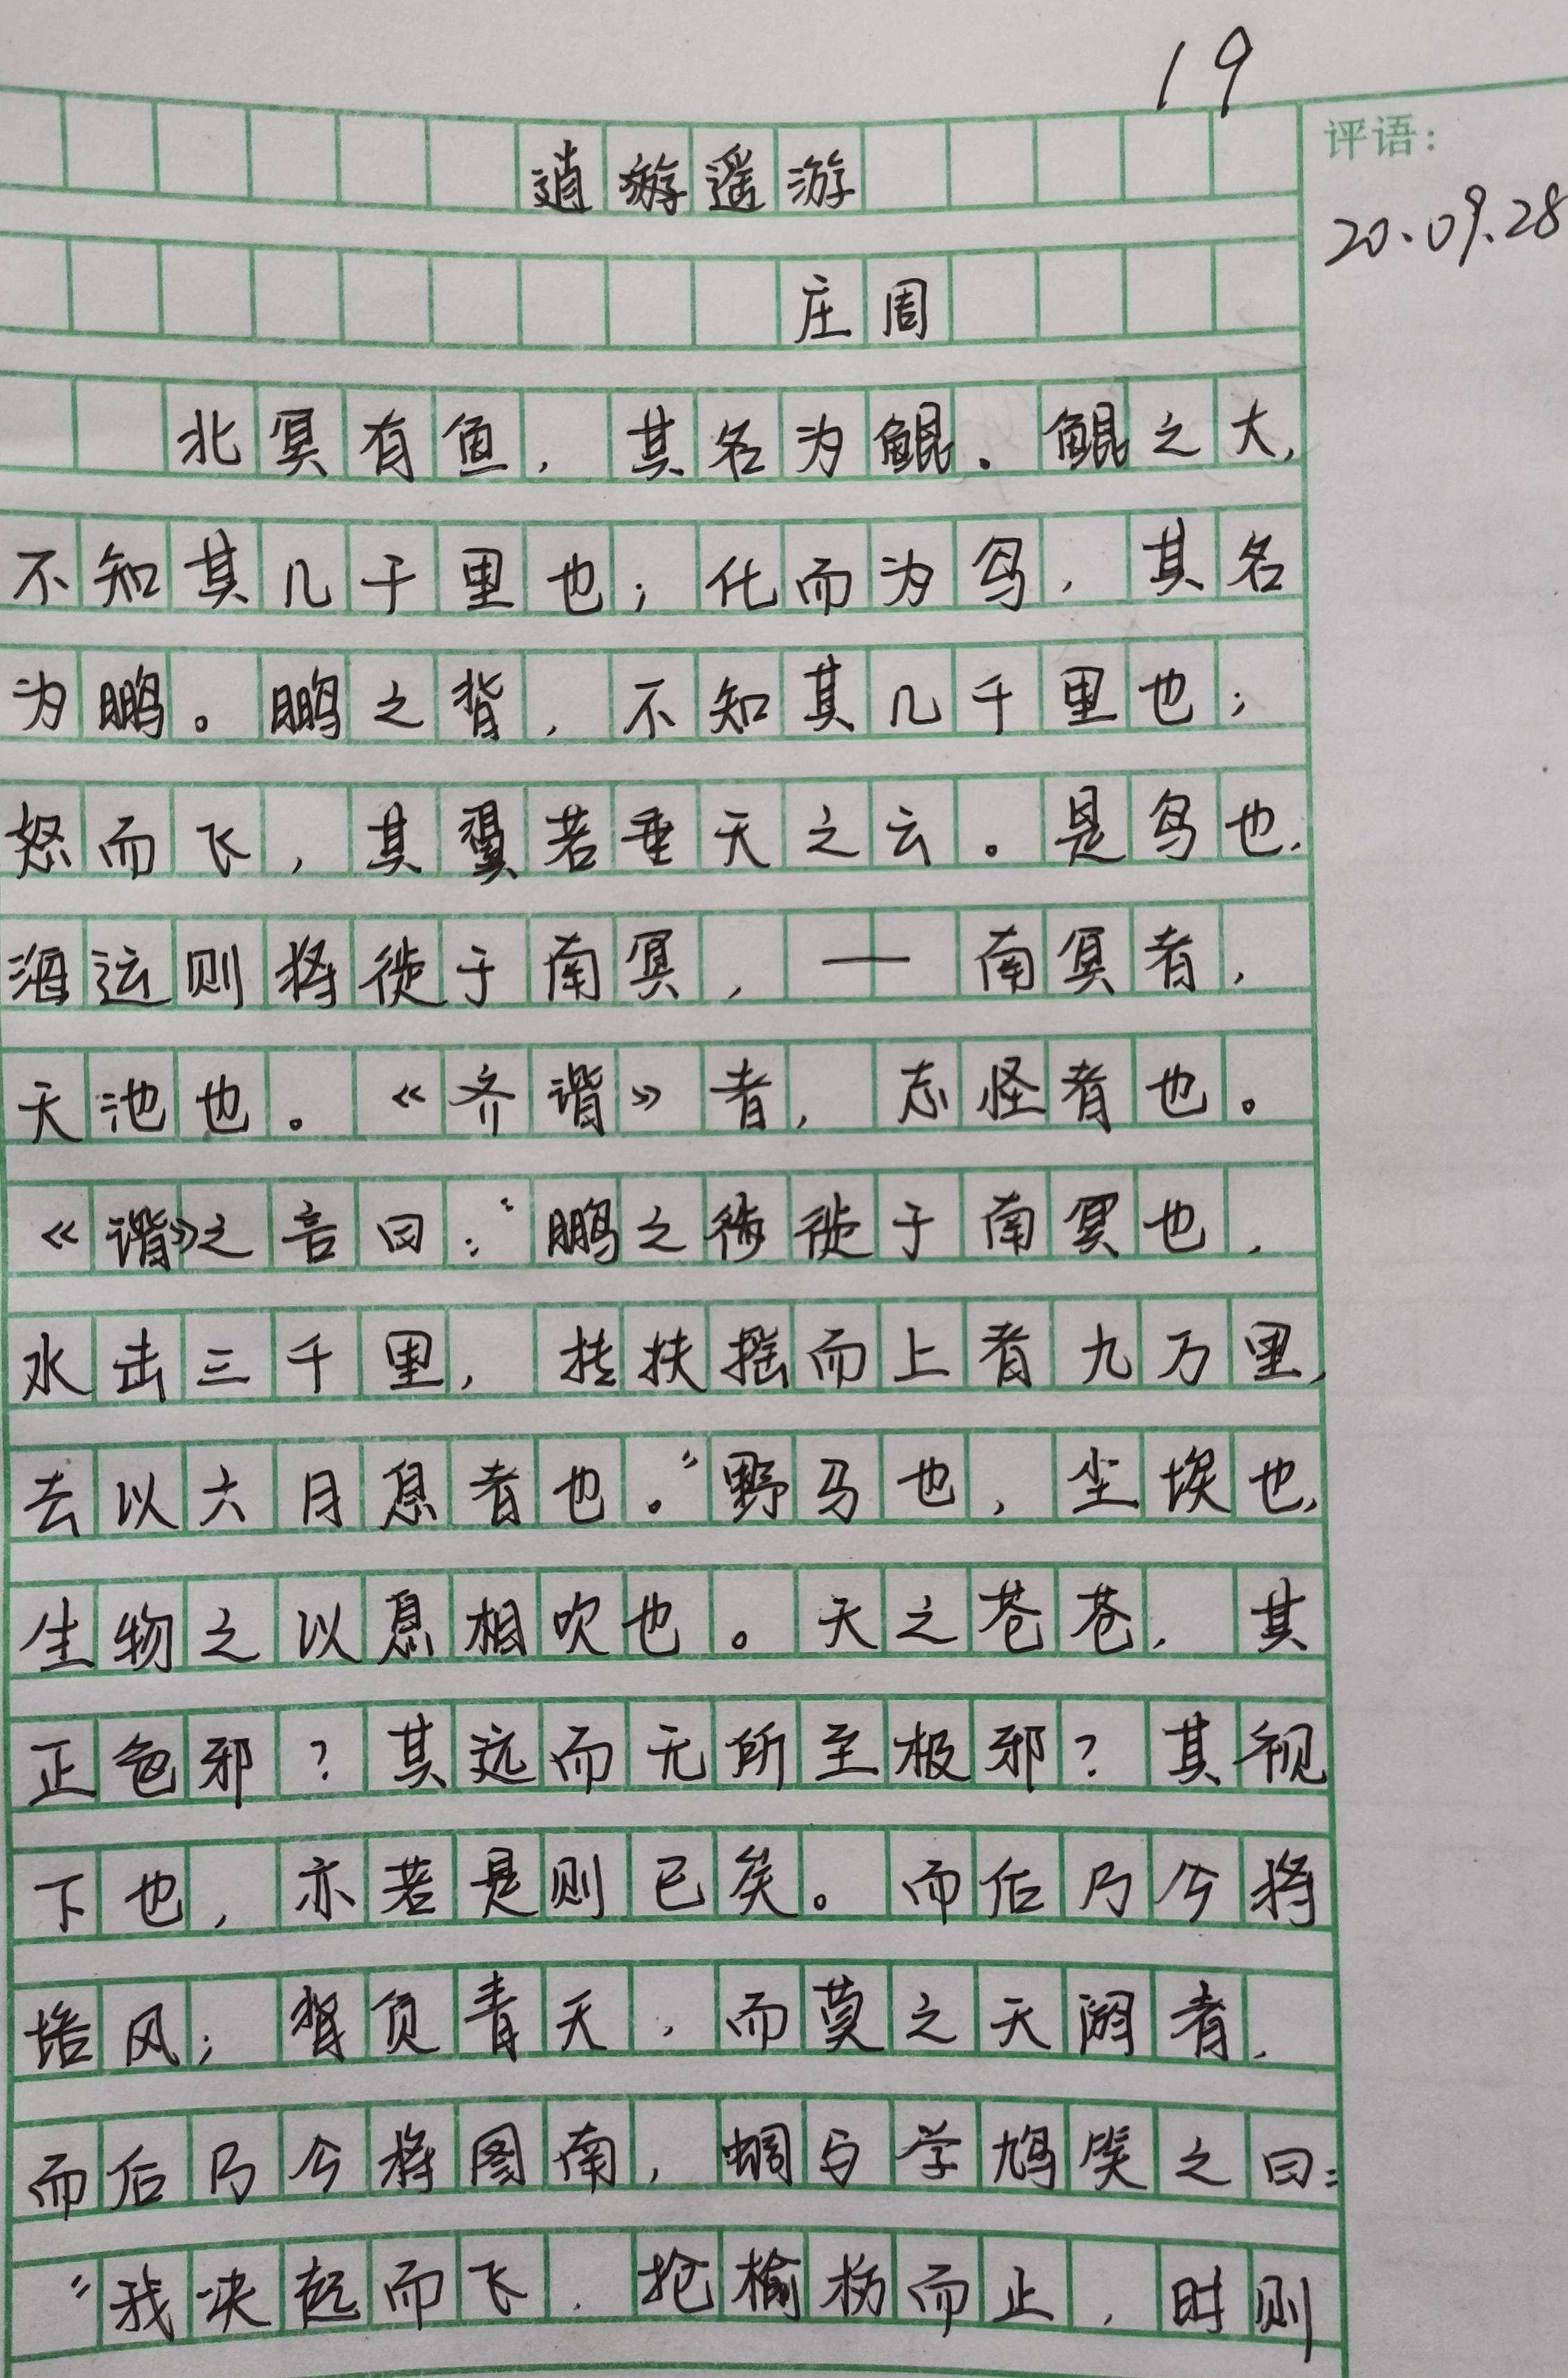 19
评语:
20.09.28
逍游遥游
庄周
北冥有鱼，其名为鲲。鲲之大，
不知其几千里也；化而为鸟，其名
为鹏。鹏之背，不知其几千里也；
怒而飞，其翼若垂天之云。是鸟也，
海运则将徙于南冥，一南冥者，
天池也。《齐谐》者，志怪者也。
《谐》之言曰：“鹏之徙于南冥也，
水击三千里，扶摇而上者九万里，
去以六月息者也。”野马也，尘埃也，
生物之以息相吹也。天之苍苍，其
正色邪？其远而无所至极邪？其视
下也，亦若是则已矣。而后乃今将
培风；背负青天，而莫之夭阏者，
而后乃今将图南，蜩与学鸠笑之曰：
“我决起而飞，抢榆枋而止，时则